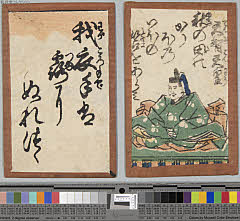 我衣手は
露に
ぬれつゝ
天智天皇
秋の田の
かりほの
いほの
苫をあらみ